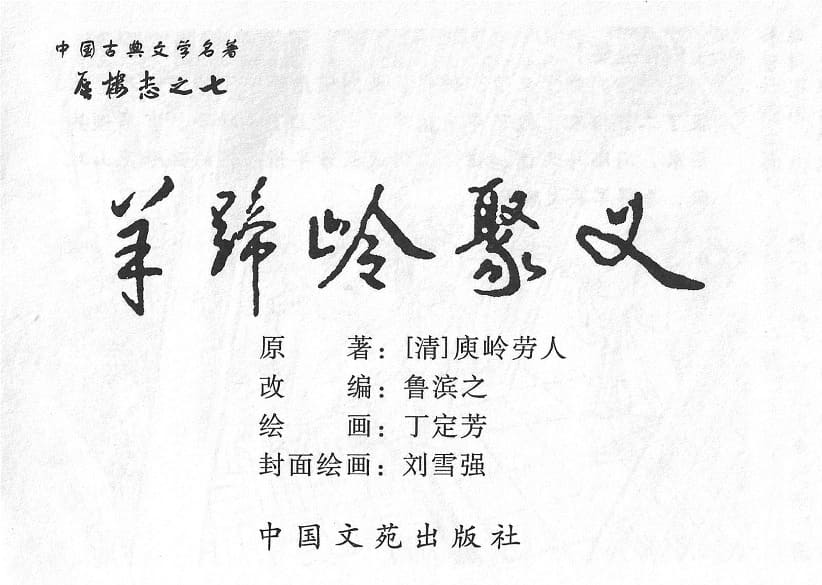 中国古典文学名著
蜃楼志之七
羊蹄岭聚义
原　　著：[清]庾岭劳人
改　　编：鲁滨之
绘　　画：丁定芳
封面绘画：刘雪强
中国文苑出版社